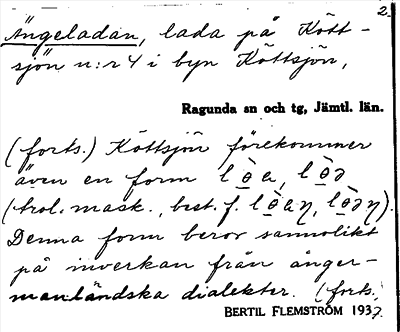 2.
Ängeladan, lada på Kött-
sjön n:r 4 i byn Köttsjön,
Ragunda sn och tg, Jämtl. län.
(forts.) Köttsjön förekommer
även en form
(trol. mask., best. f.
Denna form beror sannolikt
på inverkan från ånger-
manländska dialekter. (forts.)
BERTIL FLEMSTRÖM 1937.